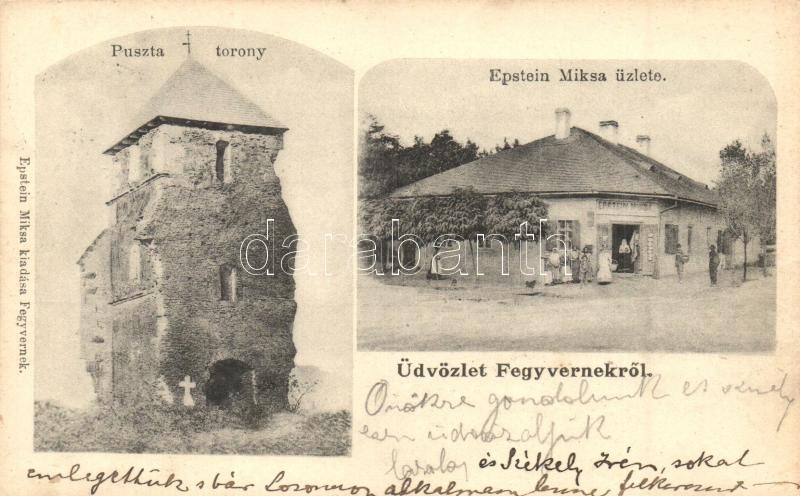 Puszta torony
Epstein Miksa üzlete.
EPSTEIN MIKSA
Epstein Miksa kiadása Fegyvernek.
darabanth.com
Üdvözlet Fegyvernekről.
Önökre gondolunk és
üdvözöljük
és Székely Irén, sokat
emlegettük s bár alkalmam lenne,